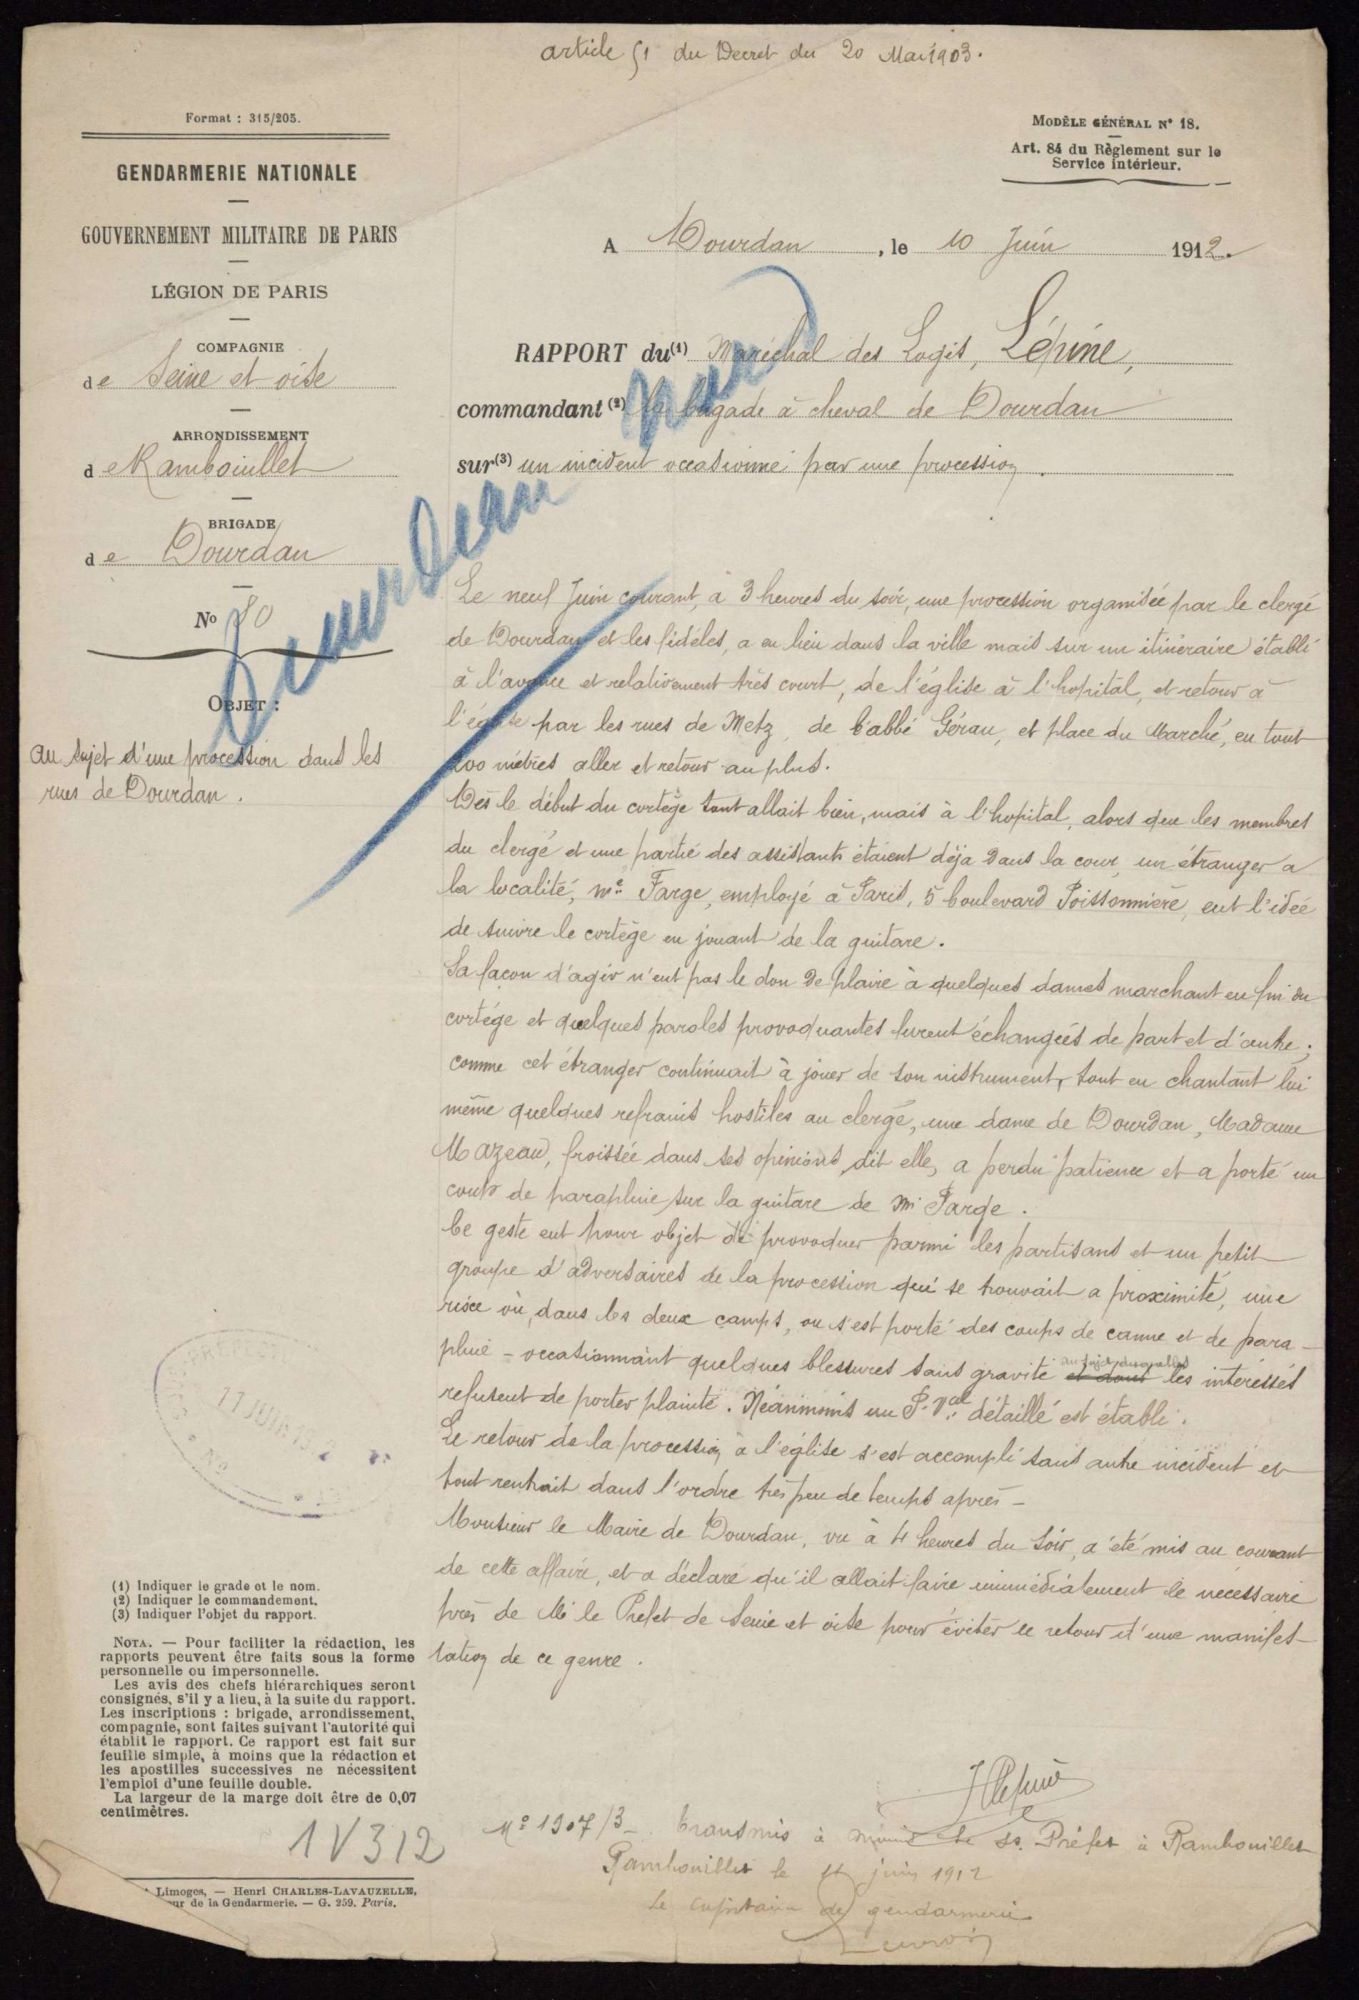 article 51 du Décret du 20 Mai 1903.
Format : 315/205.
GENDARMERIE NATIONALE
GOUVERNEMENT MILITAIRE DE PARIS
LÉGION DE PARIS
COMPAGNIE
de Seine et oise
ARRONDISSEMENT
de Rambouillet
BRIGADE
de Dourdan
No 80
OBJET :
au sujet d'une procession dans les
rues de Dourdan.
MODÈLE GÉNÉRAL N° 18.
Art. 84 du Règlement sur le
Service intérieur.
A Dourdan, le 10 Juin 1912.
RAPPORT du (1) Maréchal des Logis, Lépine,
commandant (2) la brigade à cheval de Dourdan
sur (3) un incident occasionné par une procession.
Le neuf Juin courant, à 3 heures du soir, une procession organisée par le clergé
de Dourdan et les fidèles, a eu lieu dans la ville mais sur un itinéraire établi
à l'avance et relativement très court, de l'église à l'hopital, et retour à
l'église par les rues de Metz, de l'abbé Gérau, et place du Marché, en tout
200 mètres aller et retour au plus.
Dès le début du cortège tout allait bien, mais à l'hopital, alors que les membres
du clergé et une partie des assistants étaient déja dans la cour, un étranger a
la localité, Mr. Farge, employé à Paris, 5 boulevard Poissonnière, eut l'idée
de suivre le cortège en jouant de la guitare.
Sa façon d'agir n'eut pas le don de plaire à quelques dames marchant en fin du
cortège et quelques paroles provoquantes furent échangées de part et d'autre ;
comme cet étranger continuait à jouer de son instrument, tout en chantant lui
même quelques refrains hostiles au clergé, une dame de Dourdan, Madame
Mazeau, froissée dans ses opinions, dit elle, a perdu patience et a porté un
coup de parapluie sur la guitare de Mr Farge.
Ce geste eut pour objet de provoquer parmi les partisans et un petit
groupe d'adversaires de la procession qui se trouvait a proximité, une
rixe où, dans les deux camps, on s'est porté des coups de canne et de para-
pluie - occasionnant quelques blessures sans gravité et dont au sujet desquelles les intéressés
refusent de porter plainte. Néanmoins un P. Val détaillé est établi.
Le retour de la procession à l'église s'est accompli sans autre incident et
tout rentrait dans l'ordre très peu de temps après -
Monsieur le Maire de Dourdan, vu à 4 heures du soir, a été mis au courant
de cette affaire, et a déclaré qu'il allait faire immédiatement le nécessaire
près de Mr le Préfet de Seine et oise pour éviter le retour d'une manifes-
tation de ce genre.
SOUS-PRÉFECTURE
11 JUIN 19
(1) Indiquer le grade et le nom.
(2) Indiquer le commandement.
(3) Indiquer l'objet du rapport.
NOTA. — Pour faciliter la rédaction, les
rapports peuvent être faits sous la forme
personnelle ou impersonnelle.
Les avis des chefs hiérarchiques seront
consignés, s'il y a lieu, à la suite du rapport.
Les inscriptions : brigade, arrondissement,
compagnie, sont faites suivant l'autorité qui
établit le rapport. Ce rapport est fait sur
feuille simple, à moins que la rédaction et
les apostilles successives ne nécessitent
l'emploi d'une feuille double.
La largeur de la marge doit être de 0,07
centimètres.
1V312
Limoges, — Henri CHARLES-LAVAUZELLE,
de la Gendarmerie. — G. 259. Paris.
Lépine
No 1307/3 - Transmis à le ss. Préfet à Rambouillet
Rambouillet le 11 juin 1912
Le capitaine de gendarmerie